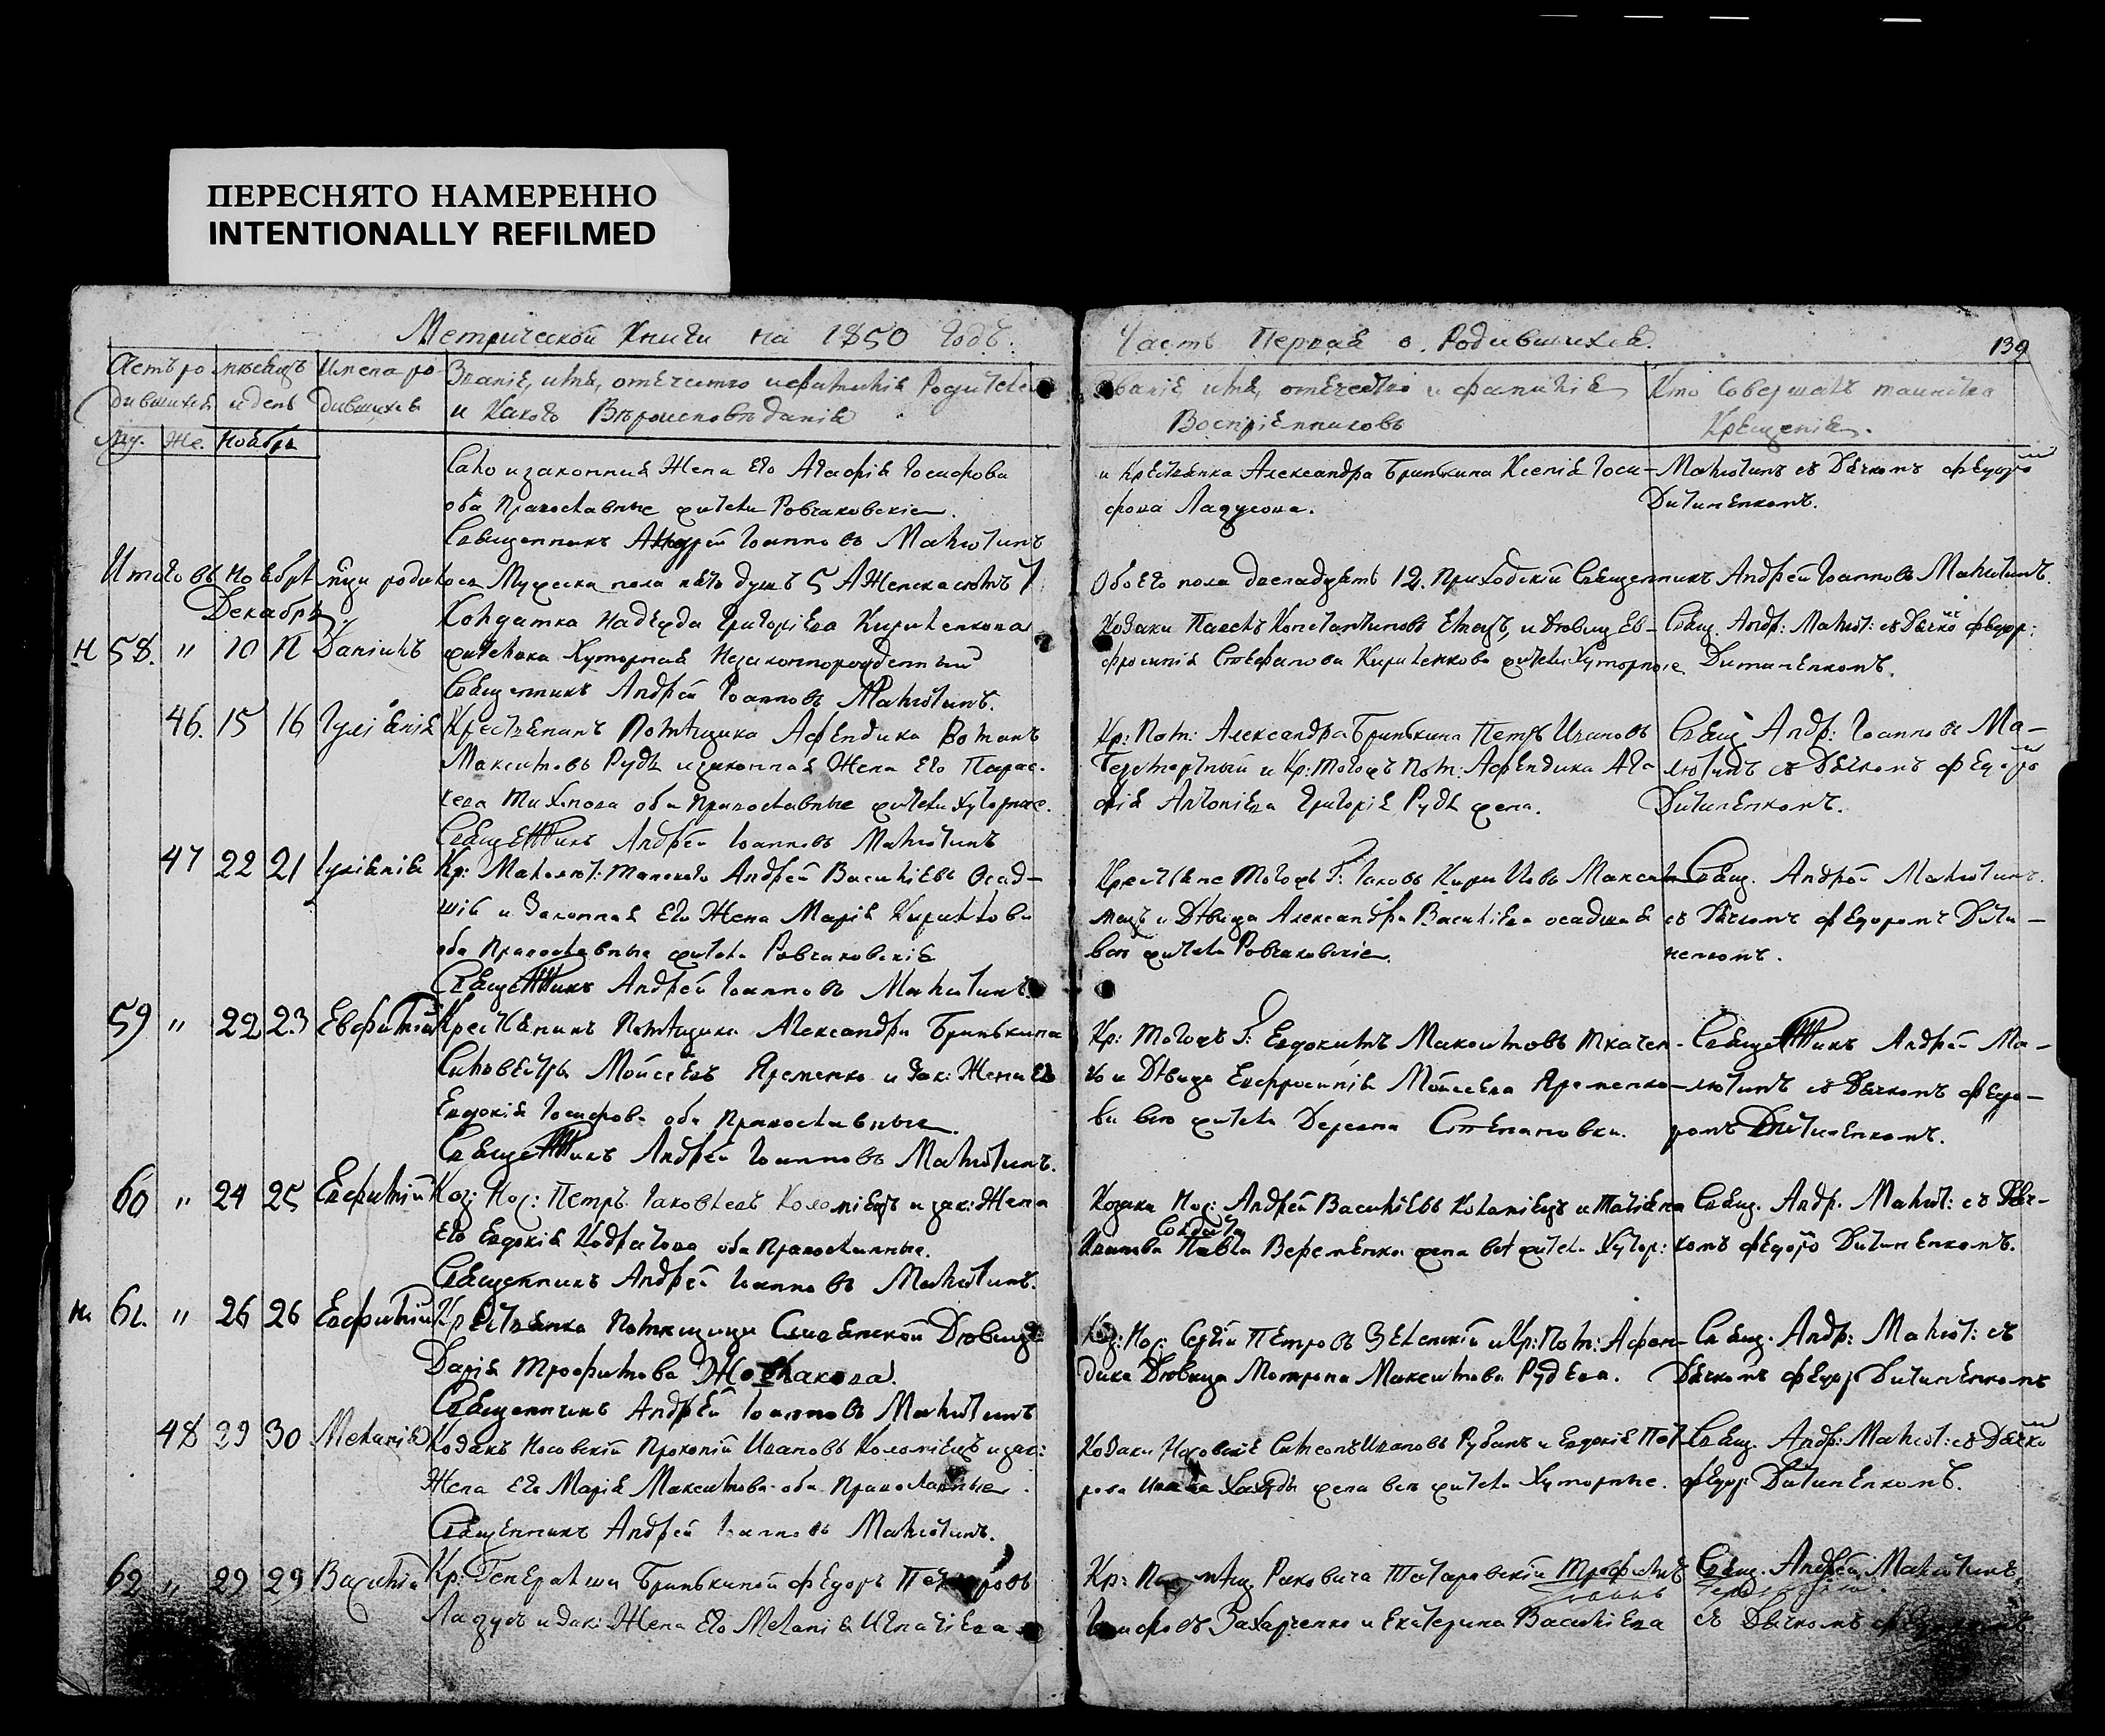 ПЕРЕСНЯТО НАМЕРЕННО
INTENTIONALLY REFILMED
Метрической Книги на 1850 годъ.
Часть Первая о Родившихся
139
Званіе, имя, отечество и фамилія Родителей
и какого Вѣроисповѣданія
Званіе, имя, отечество и фамилія
Воспріемниковъ
Кто Совершалъ таинство
Крещенія.
Му. Же. Ноябрь
и законная Жена Его Агафія Іосифова
оба Православные жители Ровчаковскіе.
Священникъ Андрей Іоанновъ Малютинъ
и Крестьянка Александра Бринкина Ксенія Іоси-
фова Лазусова.
Малютинъ съ Дьячкомъ Федоро
Дитиненкомъ.
Итого въ Ноябрѣ мцѣ родилось Мужеска пола пять душъ 5 А Женска семь 7
Обоего пола двенадцать 12. Приходскій Священникъ Андрей Іоанновъ Малютинъ.
Декабрь
Н 58. " 10 11 Даніилъ
Солдатка Надежда Григоріева Кириленкова
жителька Хуторная Незаконнорожденный
Священникъ Андрей Іоанновъ Малютинъ.
Козаки Павелъ Константиновъ Емецъ и Дѣвица Ев-
фросинія Стефанова Кириленкова жители Хуторные
Свящ. Андр: Малют: съ Дьячко Федор:
Дитиненкомъ.
46. 15 16 Іуліанія
Крестьянинъ Помѣщика Афендика Романъ
Максимовъ Рудь и законная Жена Его Парас-
кева Тихонова оба Православные жители Хуторные.
Священникъ Андрей Іоанновъ Малютинъ
Кр: Пом: Александра Бринкина Петръ Ивановъ
и Кр: Тогожъ Пом: Афендика Ага
фія Антоніева Григорія Рудя жена.
Свящ Андр: Іоанновъ Ма-
лютинъ съ Дьячкомъ Федоро
Дитиненкомъ.
47 22 21 Іуліанія
Кр: Андрей Васильевъ Осад-
шій и Законная Его Жена Марія Кирилова
оба Православные жители Ровчаковскіе
Священникъ Андрей Іоанновъ Малютинъ
Крестьяне Тогожъ Г: Іаковъ Кириловъ
и Дѣвица Александра Васильева Осадшая
всѣ жители Ровчаковскіе.
Свящ. Андрей Малютинъ.
съ Дьячкомъ Федоромъ Дити-
ненкомъ.
59 " 22 23 Евфимій
Крестьянинъ Помѣщика Александра Бринкина
Силвестръ Мойсеевъ Яременко и Зак: Жена Его
Евдокія Іосифова оба Православные.
Священникъ Андрей Іоанновъ Малютинъ.
Кр: Тогожъ Г: Евдокимъ Максимовъ Ткачен-
ко и Дѣвица Евфросинія Мойсеева Яременко-
ва всѣ жители Деревни Степановки.
Священникъ Андрей Ма-
лютинъ съ Дьячкомъ Федо-
ромъ Дитиненкомъ.
60 " 24 25 Евфимій
Коз: Нос: Петръ Іаковлевъ Коломіецъ и зак: Жена
Его Евдокія Кодратова оба Православные.
Священникъ Андрей Іоанновъ Малютинъ.
Козаки Нос: Андрей Васильевъ Коломіецъ и Татіана
Солдата
Иванова Павла Веременка жена всѣ жители Хутор:
Свящ. Андр. Малют: съ Дьяч-
комъ Федоро Дитиненкомъ.
Н 61. " 26 26 Евфимій
Крестьянка Помѣщицы Дѣвица
Дарія Трофимова
Священникъ Андрей Іоанновъ Малютинъ
Коз: Нос: Сергій Петровъ Зеленскій и Кр: Пом: Афен-
дика Дѣвица Мотрона Максимова Рудева.
Свящ. Андр: Малют: съ
Дьячкомъ Федор Дитиненкомъ
48 29 30 Меланія
Козакъ Носовскій Прокопій Ивановъ Коломіецъ и зак:
Жена Его Марія Максимова оба Православные.
Священникъ Андрей Іоанновъ Малютинъ.
Козаки Носовскіе Симеонъ Ивановъ Рубанъ и Евдокія Пет
рова жена всѣ жители Хуторные.
Свящ. Андр: Малют: съ Дьячко
Федор: Дитиненкомъ.
62 " 29 29 Василій
Кр: Генеральши Бринкиной Федоръ Петровъ
Лазусъ и Зак: Жена Его Меланія Игнатіева
Кр: Раковича Трофимъ
Іосифовъ Захарченко и Екатерина Васильева
Свящ. Андрей Малютинъ
съ Дьячкомъ